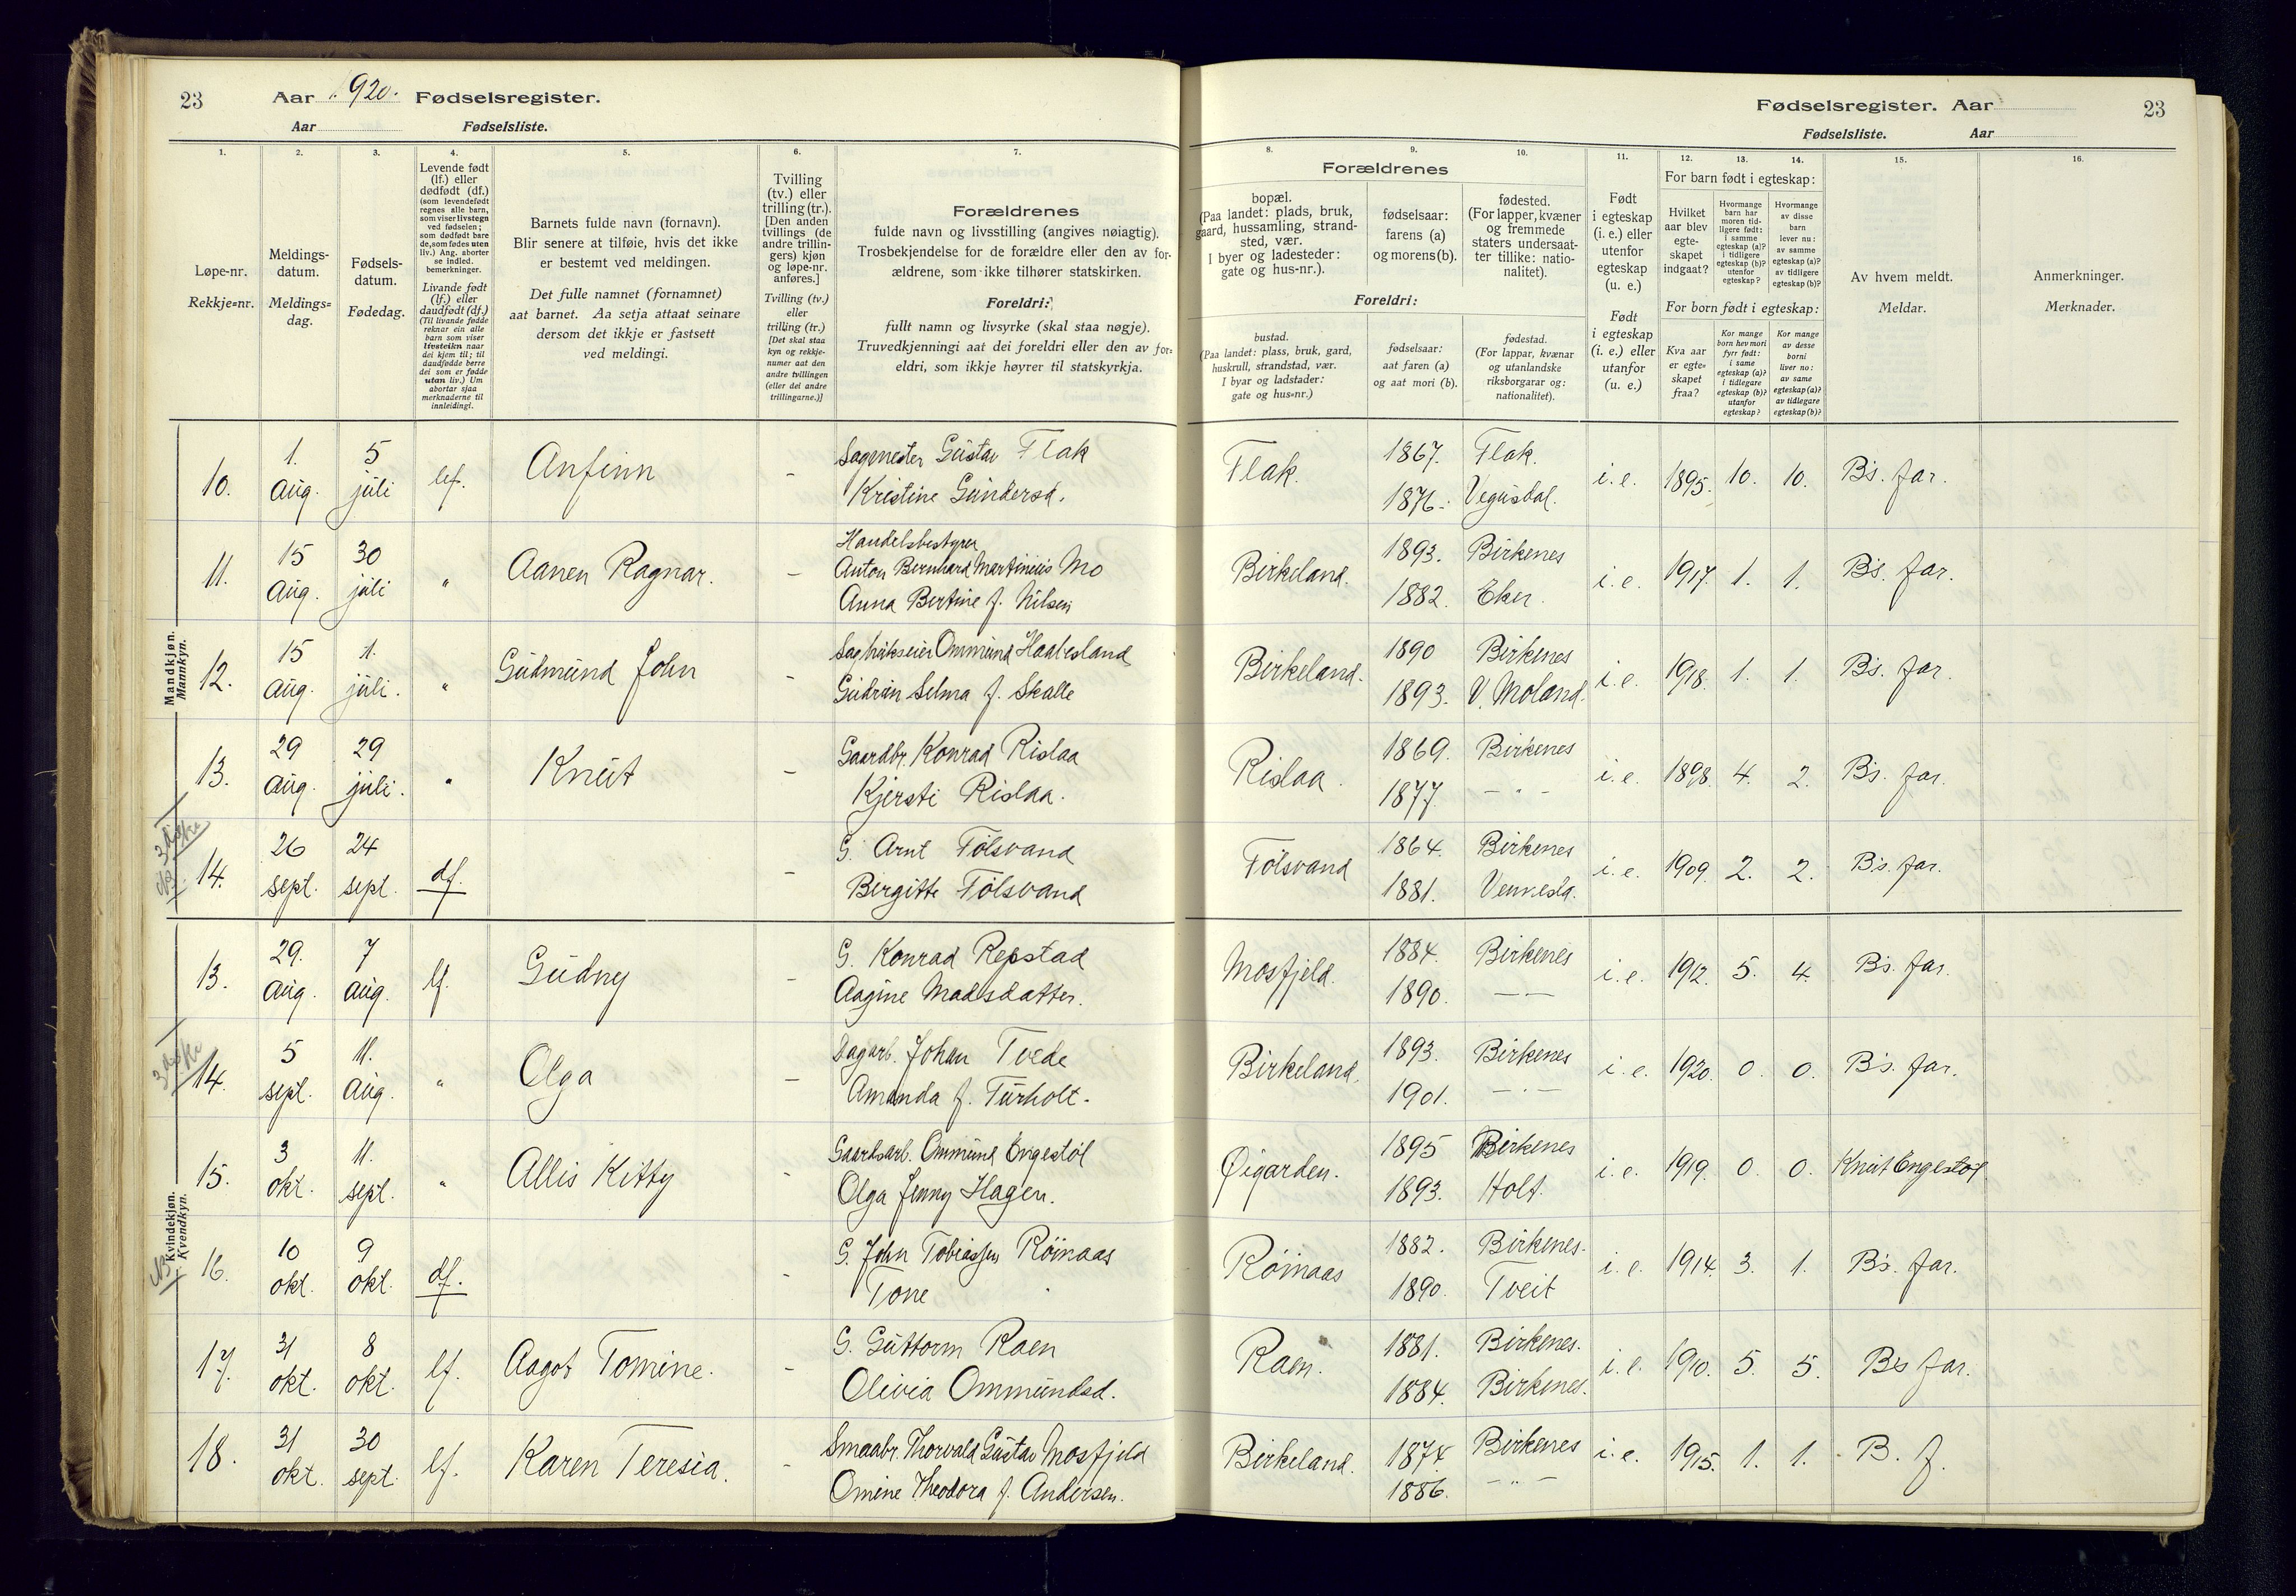 23 Aar 1920. Fødselsregister.
Aar Fødselsliste.
Fødselsregister. Aar 23
Fødselsliste. Aar
1.
Løpe-nr.
Rekkje=nr.
2.
Meldings-
datum.
Meldings=
dag.
3.
Fødsels-
datum.
Fødedag.
4.
Levende født
(lf.) eller
dødfødt (df.)
(som levendefødt
regnes alle barn,
som viser livstegn
ved fødselen;
som dødfødt bare
de, som fødes uten
liv.) Ang. aborter
se indled.
bemerkninger.
Livande født
(lf.) eller
daudfødt (df.)
(Til livande fødde
reknar ein alle
barn som viser
livsteikn naar
dei kjem til; til
daudfødde berre
dei som er fødde
utan liv.) Um
abortar sjaa
merknaderne til
innleidingi.
5.
Barnets fulde navn (fornavn).
Blir senere at tilføie, hvis det ikke
er bestemt ved meldingen.
Det fulle namnet (fornamnet)
aat barnet. Aa setja attaat seinare
dersom det ikkje er fastsett
ved meldingi.
6.
Tvilling
(tv.) eller
trilling (tr.).
[Den anden
tvillings (de
andre trillin-
gers) kjøn
og løpe-nr.
anføres.]
Tvilling (tv.)
eller
trilling (tr.)
[Det skal staa
kyn og rekkje-
numer aat den
andre tvillingen
(eller dei andre
trillingarne.)]
7.
Forældrenes
fulde navn og livsstilling (angives nøiagtig).
Trosbekjendelse for de forældre eller den av for-
ældrene, som ikke tilhører statskirken.
Foreldri:
fullt namn og livsyrke (skal staa nøgje).
Truvedkjenningi aat dei foreldri eller den av for=
eldri, som ikkje høyrer til statskyrkja.
Forældrenes
8.
bopæl.
(Paa landet: plads, bruk,
gaard, hussamling, strand-
sted, vær.
I byer og ladesteder:
gate og hus-nr.).
9.
fødselsaar:
farens (a)
og morens (b).
10.
fødested.
(For lapper, kvæner
og fremmede
staters undersaat-
ter tillike: natio-
nalitet).
Foreldri:
bustad.
(Paa landet: plass, bruk, gard,
huskrull, strandstad, vær.
I byar og ladstader:
gate og hus=nr.)
fødselsaar:
aat faren (a)
og aat mori (b).
fødestad.
(For lappar, kvænar
og utanlandske
riksborgarar og:
nationalitet).
11.
Født
i egteskap
(i. e.) eller
utenfor
egteskap
(u. e.)
Født
i egteskap
(i. e.) eller
utanfor
(u. e.)
12. 13. 14.
For barn født i egteskap:
Hvilket
aar blev
egte-
skapet
indgaat?
Hvormange
barn har
moren tid-
ligere født:
i samme
egteskap (a)?
i tidligere
egteskap (b)?
utenfor
egteskap?
Hvormange
av disse
barn
lever nu:
av samme
egteskap (a)?
av tidligere
egteskap (b)?
For born født i egteskap:
Kva aar
er egte=
skapet
fraa?
Kor mange
born hev mori
fyrr født:
i same
egteskap (a)?
i tidlegare
egteskap (b)?
utanfor
egteskap?
Kor mange
av desse
borni
liver no:
av same
egteskap (a)?
av tidlegare
egteskap (b)?
15.
Av hvem meldt.
Meldar.
16.
Anmerkninger.
Merknader.
Mandkjøn.
Mannkyn.
10. 1. Aug. 5 juli lef. Anfinn - Sagmester Gustav Flak Flak. 1867. Flak. i.e. 1895. 10. 10. B's. far.
Kristine Gundersd. 1876. Vegusdal.
11. 15 Aug. 30 juli " Aanen Ragnar. - Handelsbestyrer
Anton Bernhard Martinius Mo Birkeland. 1893. Birkenes i.e. 1917. 1. 1. B's. far.
Anna Bertine f. Nilsen 1882. Eker.
12. 15 Aug. 1. juli. " Gudmund John - Sagbrukseier Ommund Haabesland Birkeland. 1890 Birkenes i.e. 1918. 1. 1. B's. far.
Gudrun Selma f. Skalle 1893. V. Moland.
13. 29 Aug. 29 juli. " Knut - Gaardbr. Konrad Rislaa Rislaa. 1869. Birkenes i.e. 1898. 4. 2. B's. far.
Kjersti Rislaa. 1877. - " -
NB. 14. 26 sept. 24 sept. df. - G. Arnt Tølsvand Tølsvand 1864. Birkenes i.e. 1909. 2. 2. B's. far.
Birgitte Tølsvand 1881. Vennesla.
Kvindekjøn.
Kvendkyn.
13. 29. Aug. 7 Aug. lf. Gudny - G. Konrad Repstad Mosfjeld. 1884. Birkenes i.e. 1912. 5. 4. B's. far.
Aagine Madsdatter. 1890. - -
14. 5 sept. 11. Aug. " Olga - Dagarb. Johan Tvede Birkeland. 1893. Birkenes i.e. 1920. 0. 0. B's. far.
Amanda f. Turholt. 1901. - " -
15. 3 okt. 11. sept. " Allis Kitty - Gaardsarb. Ommund Engestøl Øigarden. 1895 Birkenes i.e. 1919. 0. 0. Knut Engestøl
Olga Jenny Hagen. 1893. Holt.
NB 16. 10 okt. 9 okt. df. - G. John Tobiassen Røinaas Røinaas 1882. Birkenes. i.e. 1914. 3. 1. B's. far.
Tone 1890. Tveit
17. 31 okt. 8 okt. lf. Aagot Tomine. - G. Guttorm Raen Raen. 1881. Birkenes. i.e. 1910. 5. 5. B's far.
Olivia Ommundsd. 1884. Birkenes.
18. 31 okt. 30 sept. lf. Karen Teresia. - Smaabr. Thorvald Gustav Mosfjeld Birkeland. 1874. Birkenes i.e. 1915. 1. 1. B. f.
Omine Theodora f. Andersen. 1886. - " -